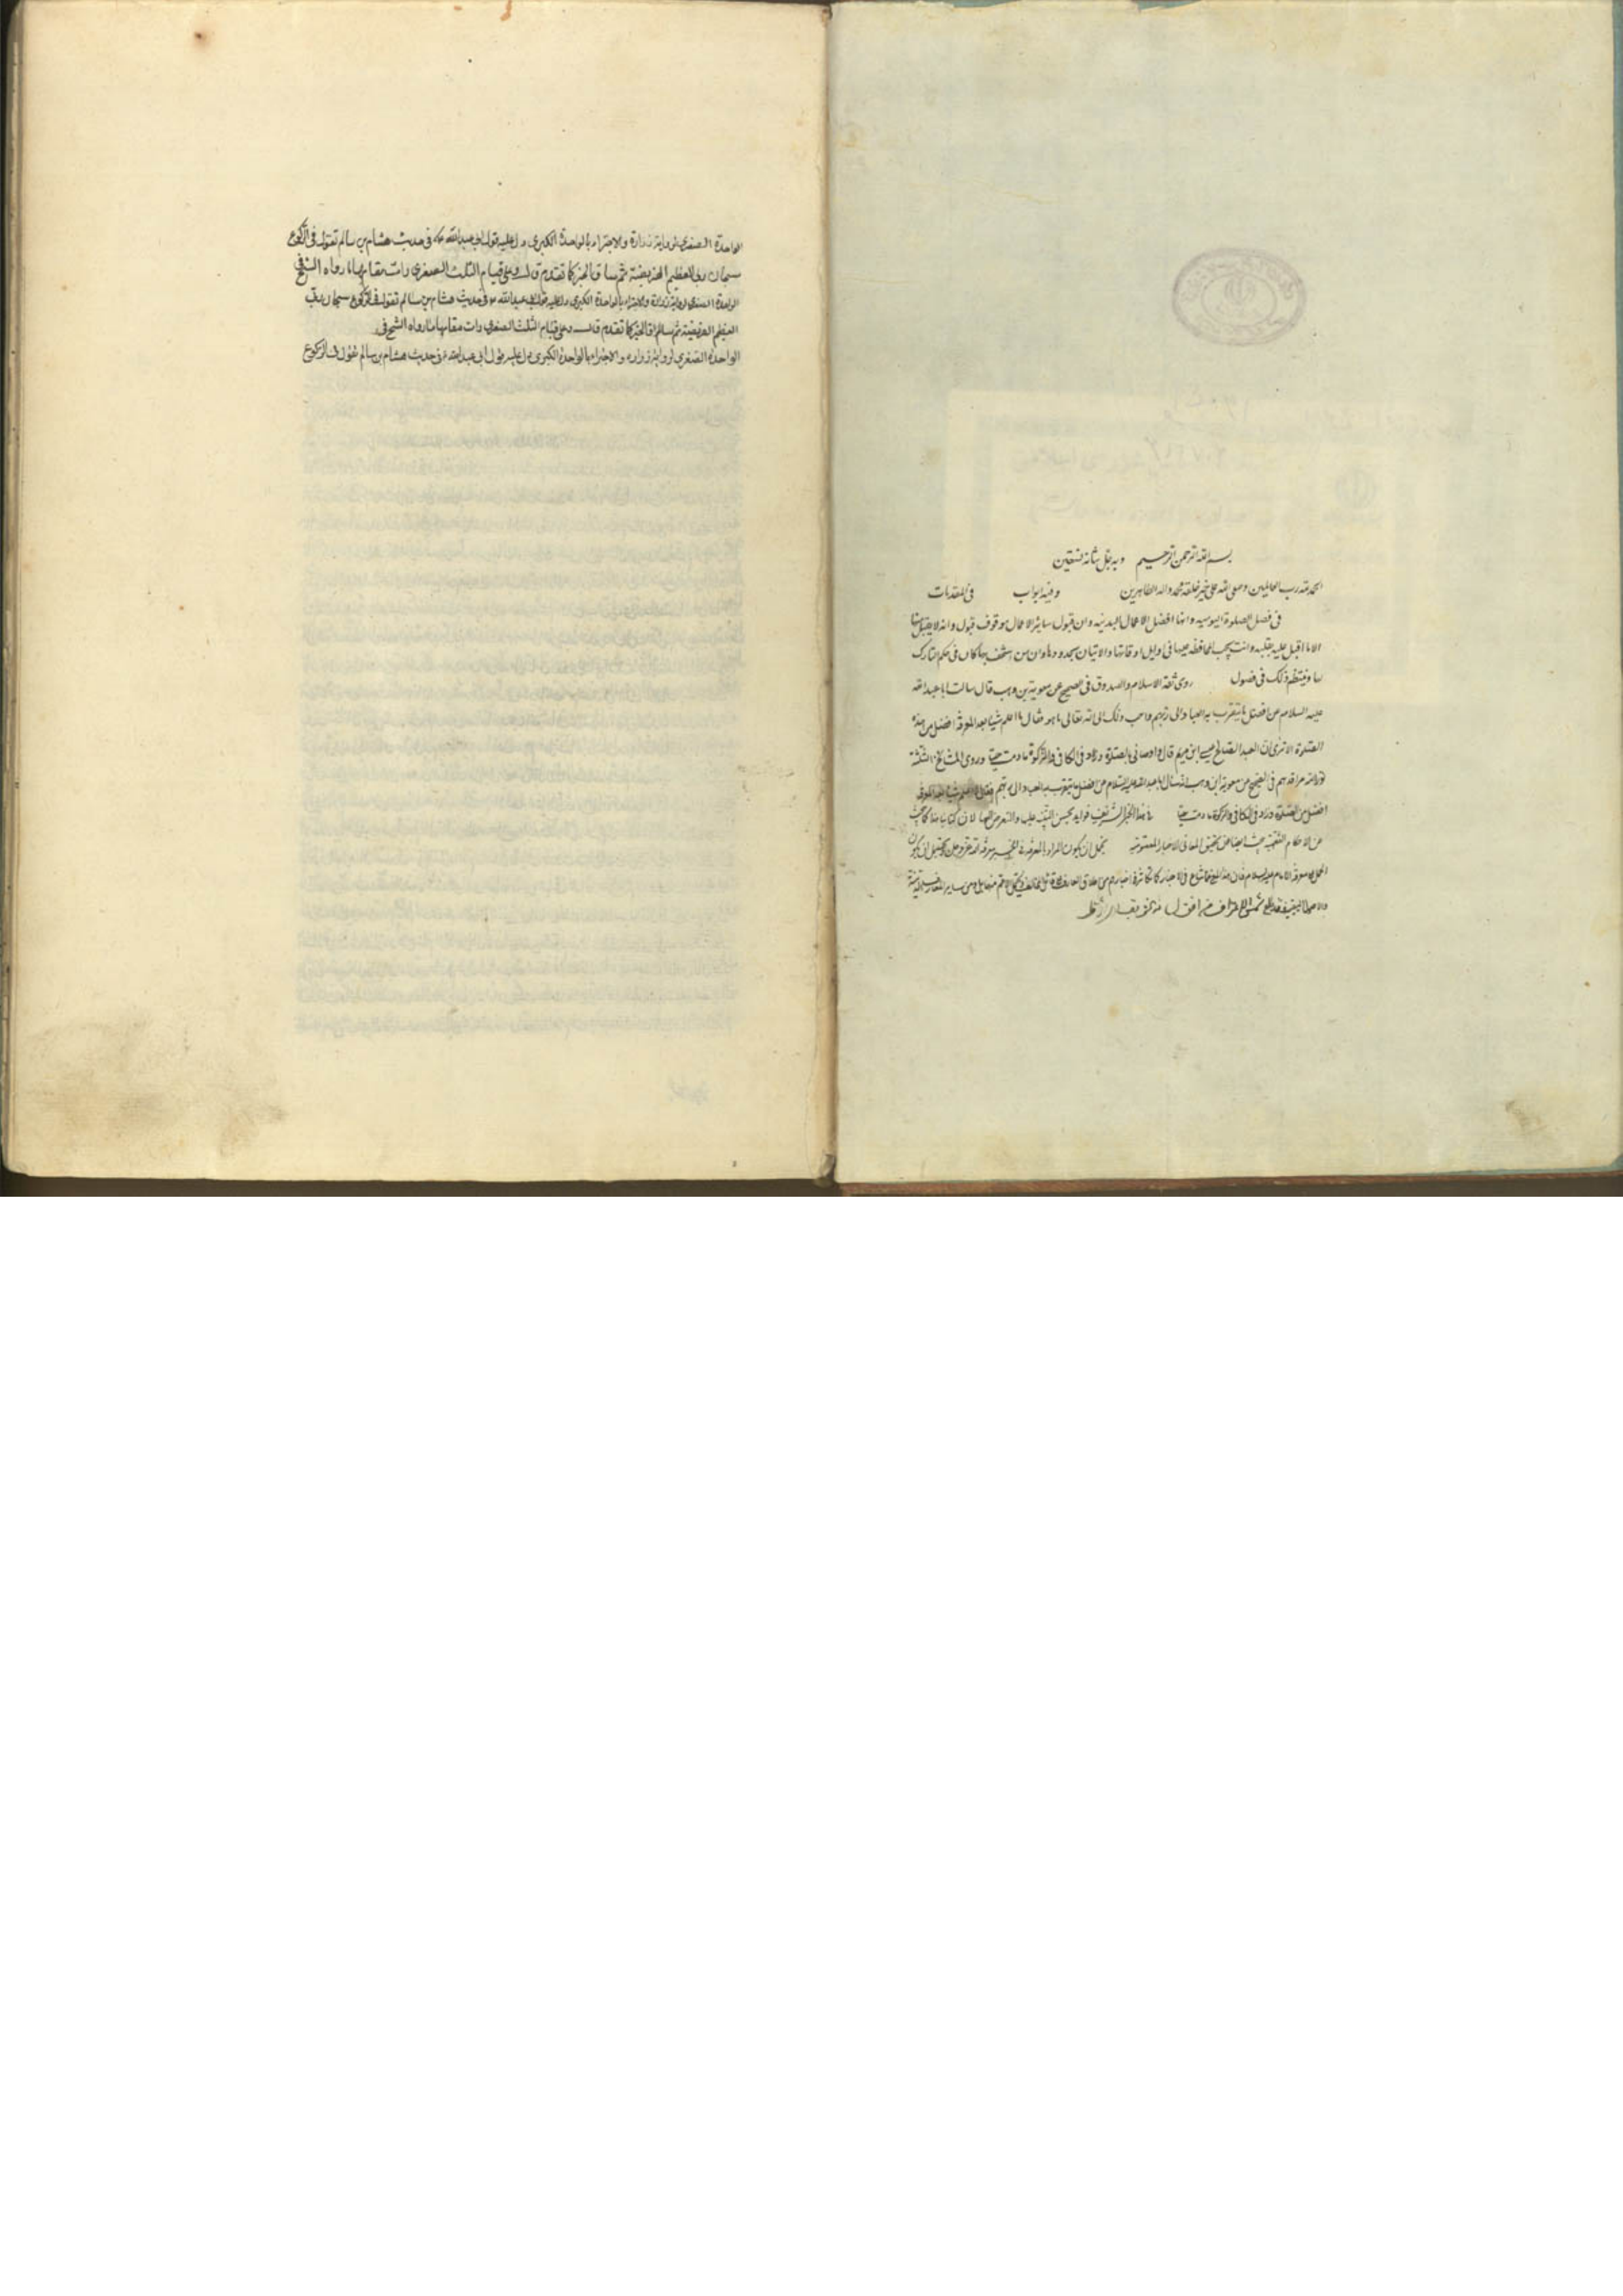 بسم الله الرحمن الرحيم وبه جل شانه نستعين
الحمد لله رب العالمين وصلى الله على خير خلقه محمد واله الطاهرين وفيه ابواب في المقدمات
في فضل الصلوة اليومية وانها افضل الاعمال البدنيه وان قبول سائر الاعمال موقوف قبول وانه لا يقبل منها
الا ما اقبل عليه بقلبه وانه يجب المحافظه عليها في اوايل اوقاتها والاتيان بحدودها وان من استخف بها كان في حكم التارك
لها وينتظم ذلك في فصول روى ثقة الاسلام والصدوق في الصحيح عن معوية بن وهب قال سالت ابا عبد الله
عليه السلام عن افضل ما يتقرب به العباد الى ربهم واحب ذلك الى الله تعالى ما هو فقال ما اعلم شيئا بعد المعرفة افضل من هذه
الصلوة الا ترى ان العبد الصالح عيسى ابن مريم قال واوصاني بالصلوة وزاد في الكافي والزكوة ما دمت حيا وروى المشايخ الثلثة
نور الله مراقدهم في الصحيح عن معوية ابن وهب انه سال ابا عبد الله عليه السلام عن افضل ما يتقرب به العباد الى ربهم فقال ما اعلم شيئا بعد المعرفة
افضل من الصلوة وزاد في الكافي والزكوة ما دمت حيا في هذا الخبر الشريف فوايد يحسن التنبيه عليها والتعرض لها لان كتابنا هذا كما يبحث
عن الاحكام الفقهية يبحث ايضا عن تحقيق المعاني الاخبار المعصومية يحتمل ان يكون المراد بالمعرفه في الخبر معرفة الله عز وجل ويحتمل ان يكون
الواحدة الصغرى لرواية زرارة والاجتزاء بالواحدة الكبرى دل عليه قول ابي عبد الله ع في حديث هشام بن سالم تقول في الركوع
سبحان ربي العظيم الفريضة ثم ساق الخبر كما تقدم قال وعلى قيام الثلث الصغرى ذات مقامها ما رواه الشيخ في
الواحدة الصغرى لرواية زرارة والاجتزاء بالواحدة الكبرى دل عليه قول ابي عبد الله ع في حديث هشام بن سالم تقول في الركوع سبحان ربي
العظيم الفريضة ثم ساق الخبر كما تقدم قال وعلى قيام الثلث الصغرى ذات مقامها ما رواه الشيخ في
الواحدة الصغرى لرواية زرارة والاجتزاء بالواحدة الكبرى دل عليه قول ابي عبد الله ع في حديث هشام بن سالم تقول في الركوع